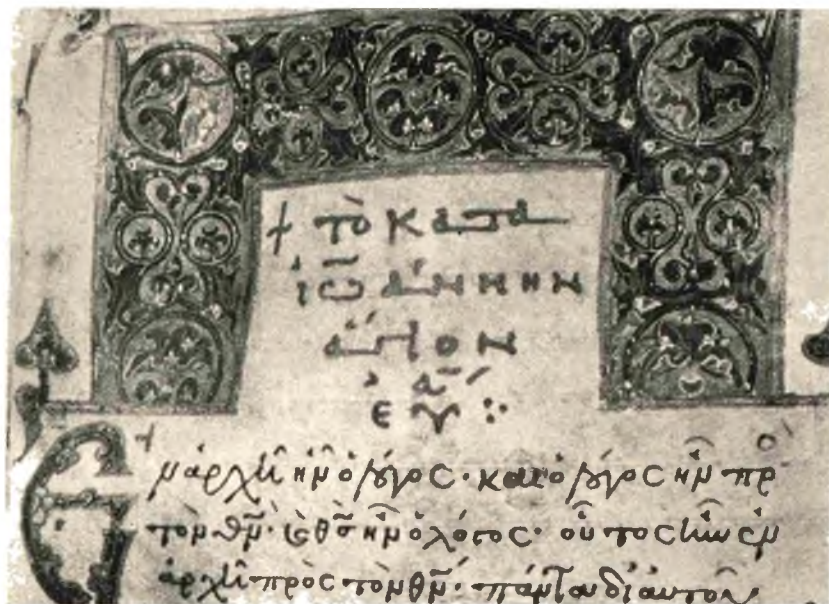 + τὸ κατὰ
ἰωάννην
ἅγιον
εὐα
Ἐν ἀρχῆ ἦν ὁ λόγος· καὶ ὁ λόγος ἦν πρ
τὸν θν· καὶ θσ ἦν ὁ λόγος· οὗτος ἦν ἐν
ἀρχῆ πρὸς τὸν θν· πάντα δι αὐτοῦ